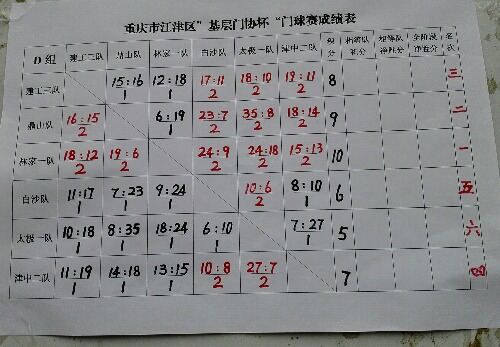 重庆市江津区"基层门协杯"门球赛成绩表
D组 建工二队 鼎山队 林家一队 白沙队 太极一队 津中二队 积分 相等队积分 相等队净胜分 全阶段净胜分 名次
建工二队 15:16 1 12:18 1 17:11 2 18:10 2 19:11 2 8 三
鼎山队 16:15 2 6:19 1 23:7 2 35:8 2 18:14 2 9 二
林家一队 18:12 2 19:6 2 24:9 2 24:18 2 15:13 2 10 一
白沙队 11:17 1 7:23 1 9:24 1 10:6 2 8:10 1 6 五
太极一队 10:18 1 8:35 1 18:24 1 6:10 1 7:27 1 5 六
津中二队 11:19 1 14:18 1 13:15 1 10:8 2 27:7 2 7 四